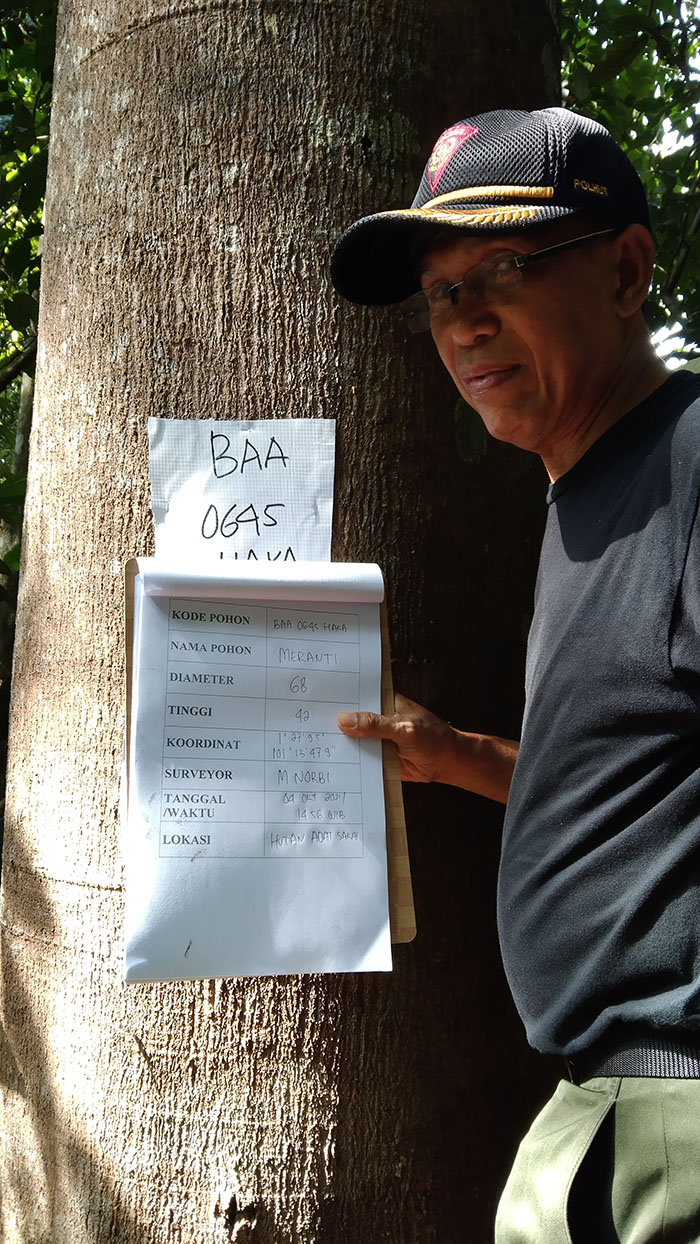 POLHUT
BAA
0645
HAKA
KODE POHON BAA 0645 HAKA
NAMA POHON MERANTI
DIAMETER 68
TINGGI 42
KOORDINAT 1° 27' 9.5"
101° 13' 47.9"
SURVEYOR M NORBI
TANGGAL 04 OKT 2021
/WAKTU 14 56 WIB
LOKASI HUTAN ADAT SAKAI